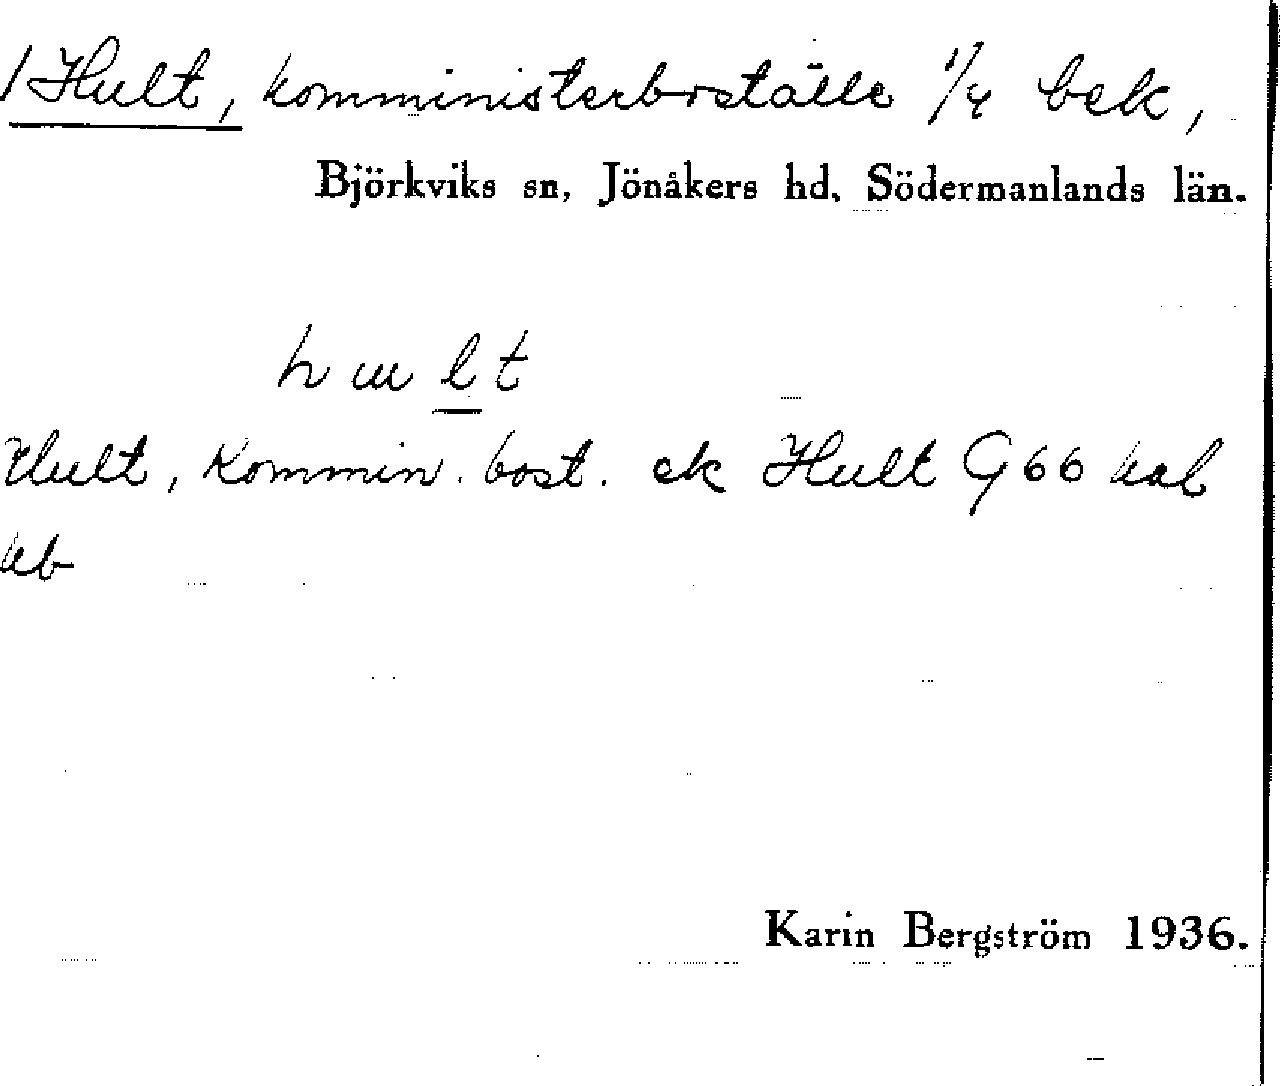 1 Hult, komministerboställe 1/4 bek,
Björkviks sn, Jönåkers hd, Södermanlands län.
h u l t
Hult, Kommin. bost. ek Hult G 66 kal
kb
Karin Bergström 1936.